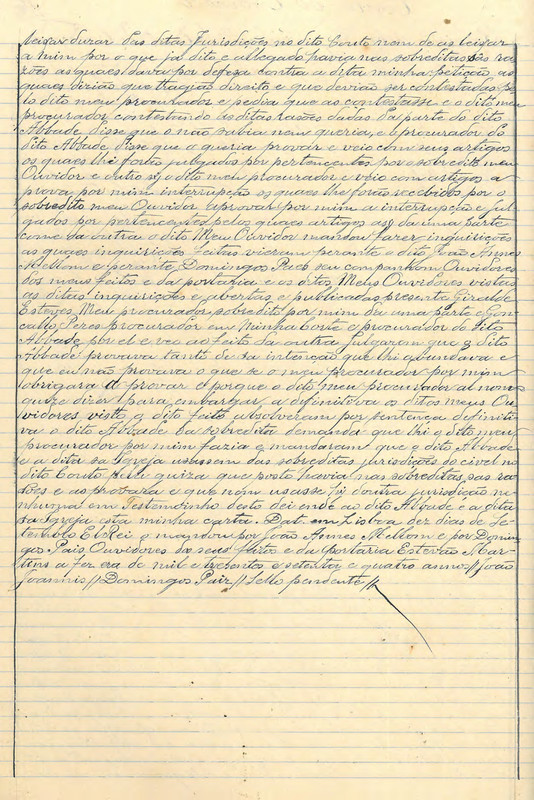 leixar durar das ditas Jurisdições no dito Couto nem de as leixar
a mim por o que já dito e allegado havia nas sobreditas sas ra-
zões as quaes dava por defeza contra a dita minha petição as
quaes dizião que tragião direito e que devião ser contestadas pe-
lo dito meu procurador e pedia que as contestasse e o dito meu
procurador contestando as ditas rasões dadas da parte do dito
Abbade disse que o não sabia nem queria, e o procurador do
dito Abbade disse que o queria provar e veio com seus artigos
os quaes lhe forão julgados por pertencentes por o sobredito meu
Ouvidor e outro sy o dito meu procurador e veio com artigos a
prova por mim interrupção os quaes lhe forão recebidos por o
sobredito meu Ouvidor a provar por mim a interrupção e jul-
gados por pertencentes pelos quaes artigos assy da uma parte
come da outra o dito Meu Ouvidor mandou fazer inquirições
as quaes inquirições feitas vierom perante o dito João Annes
Mellom e perante Domingos Paes seu companhom Ouvidores
dos meus feitos e da portaria e os ditos Meus Ouvidores vistas
as ditas inquirições e abertas e publicadas presente Giralde
Esteves Meu procurador sobredito por mim da uma parte e Gon-
çallo Peres procurador em Minha Corte e procurador do dito
Abbade por el e veo ao feito da outra julgarom que o dito
Abbade provava tanto de sa intenção que lhi avondava e
que eu não provava o que se o meu procurador por mim
obrigara a provar e porque o dito meu procurador al nom
quize dizer para embargar a definitiva os ditos meus Ou-
vidores visto o dito feito absolveram por sentença definiti-
va o dito Abbade da sobredita demanda que lhi o dito meu
procurador por mim fazia e mandaram que o dito Abbade
e a dita sa Igreja usassem das sobreditas jurisdições do civel no
dito Couto pela guiza que posto havia nas sobreditas sas ra-
zões e as provara e que nom usasse hi doutra jurisdição ne-
nhuma em Testemoinho desto dei ende ao dito Abbade e a dita
sa Igreja esta minha carta. Dat. em Lisboa dez dias de Se-
tembro ElRei o mandou por João Annes Mellom e por Domin-
gos Pais Ouvidores dos seus feitos e da Portaria Estevão Mar-
tins a fez era de mil e trezentos e setenta e quatro annos // João
Joannis // Domingos Paiz // Sello pendente //